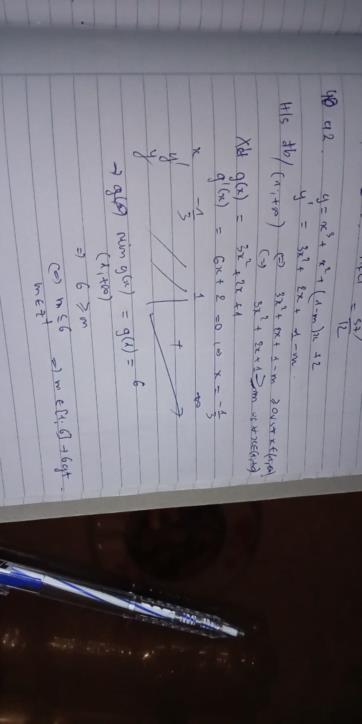 = 57/12
42.
y = x³ + x² + (1-m)x + 2
y' = 3x² + 2x + 1 - m.
H/s đb / (1; +∞) (=) 3x² + 2x + 1 - m ≥ 0 ∀ x ∈ (1; +∞)
(=) 3x² + 2x + 1 ≥ m ∀ x ∈ (1; +∞)
Xét g(x) = 3x² + 2x + 1
g'(x) = 6x + 2 = 0 (=) x = -1/3
x -1/3 1 ∞
y' +
y
→ min g(x) = g(1) = 6
(1; +∞)
=) 6 ≥ m
(=) m ≤ 6 =) m ∈ [1; 6] → 6 gt.
m ∈ Z⁺